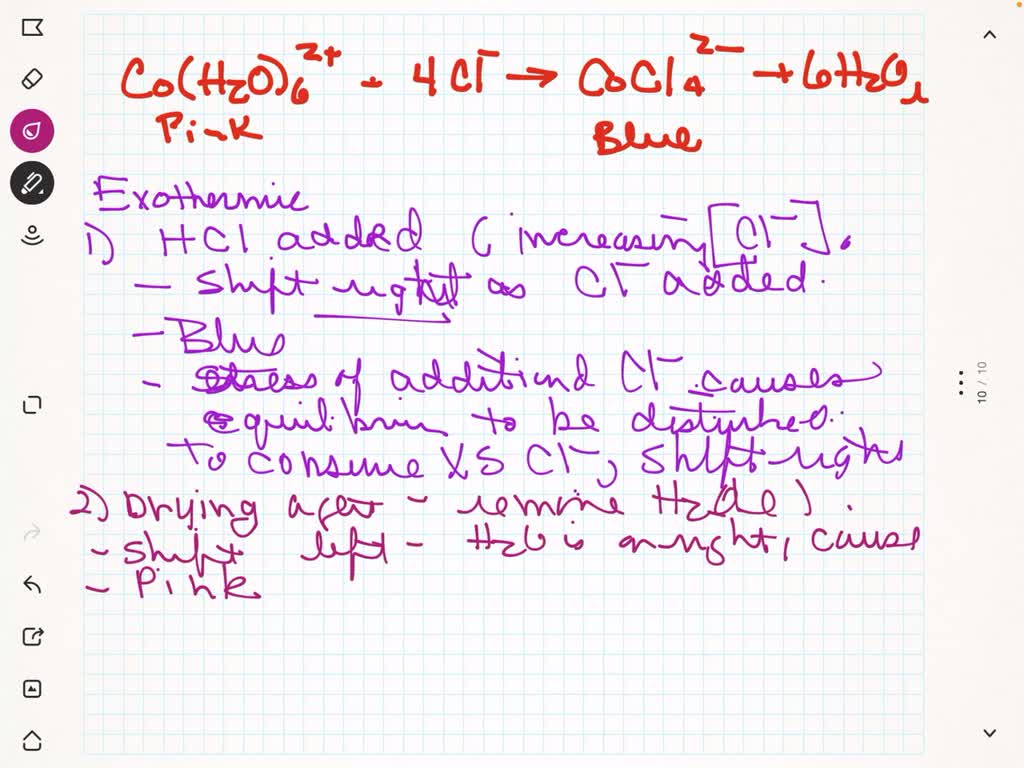 Co(H2O)6 2+ + 4Cl- → CoCl4 2- + 6H2O
Pink Blue
Exothermic
1) HCl added (increasing [Cl-].
- Shift right as Cl- added.
- Blue
- Stress of additional Cl- causes
equilibrium to be disturbed.
To consume XS Cl-, shift right
2) Drying agent - remove H2O(l).
- Shift left - H2O is on right, cause
- Pink
10 / 10